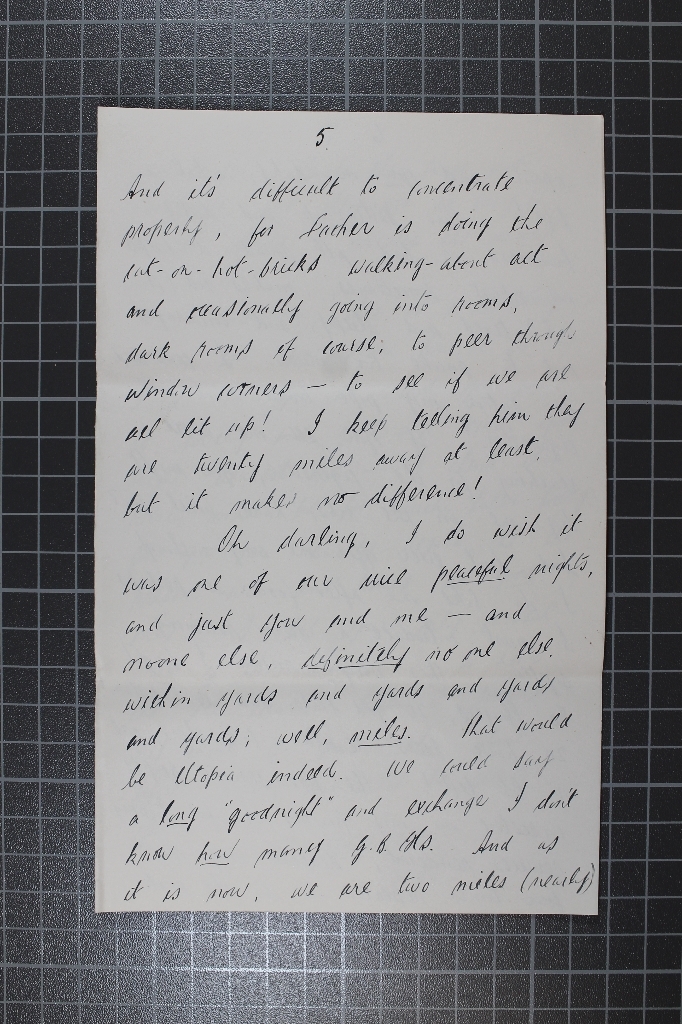 5.
And it's difficult to concentrate
properly, for Father is doing the
cat-on-hot-bricks walking-about act
and occasionally going into rooms,
dark rooms of course, to peer through
window corners — to see if we are
all lit up! I keep telling him they
are twenty miles away at least,
but it makes no difference!
Oh darling, I do wish it
was one of our nice peaceful nights,
and just you and me — and
noone else, definitely no one else,
within yards and yards and yards
and yards; well, miles. That would
be Utopia indeed. We could say
a long "goodnight" and exchange I don't
know how many G.B. Hs. And as
it is now, we are two miles (nearly)